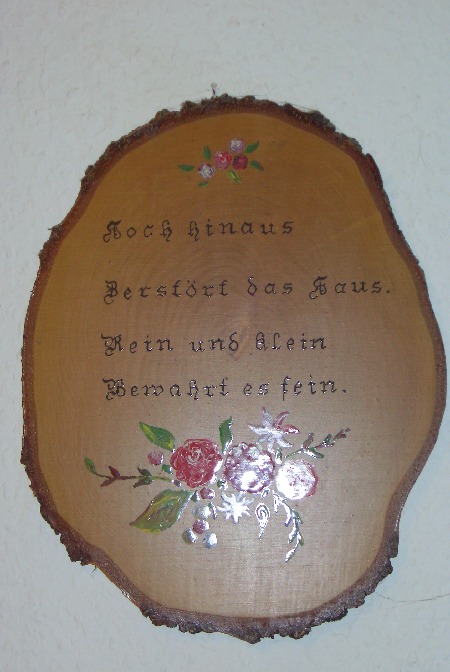 Hoch hinaus
Zerstört das Haus.
Rein und klein
Bewahrt es fein.